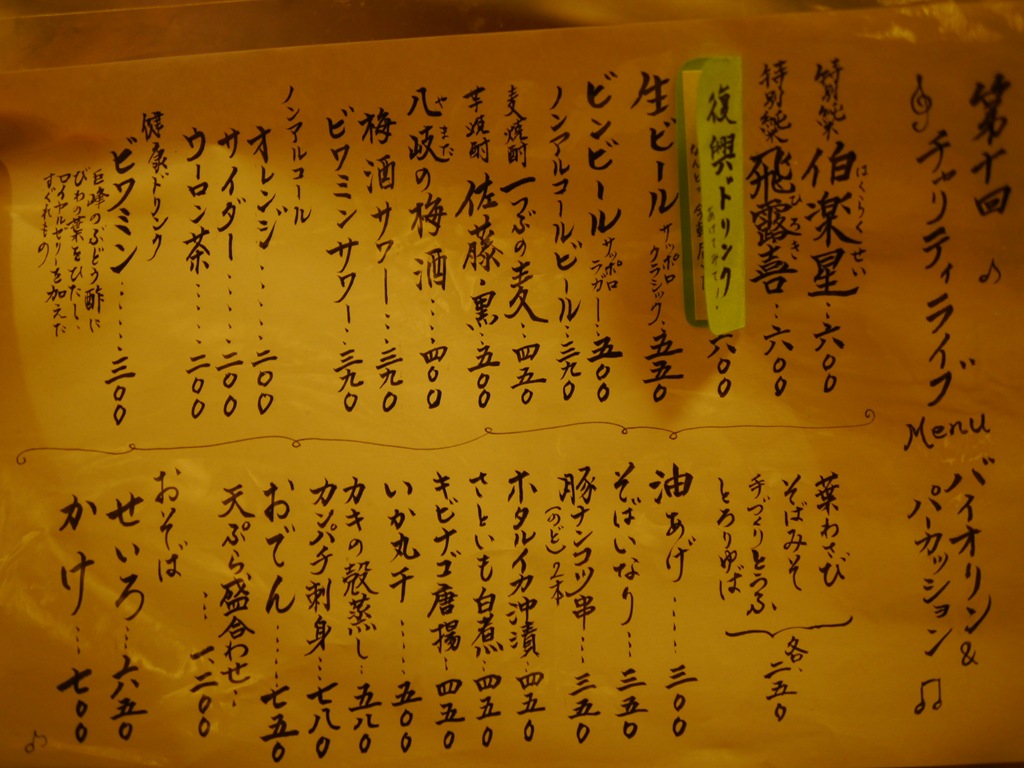 第十回
チャリティライブ Menu バイオリン&
パーカッション
特別純米 伯楽星…六〇〇
はくらくせい
特別純米 飛露喜…六〇〇
ひろき
復興ドリンク
六〇〇
生ビール サッポロクラシック…五五〇
ビンビール サッポロラガー…五〇〇
ノンアルコールビール…三九〇
麦焼酎 一つぶの麦…四五〇
芋焼酎 佐藤・黒…五〇〇
八岐の梅酒…四〇〇
やまた
梅酒サワー…三九〇
ビワミンサワー…三九〇
ノンアルコール
オレンジ…二〇〇
サイダー…二〇〇
ウーロン茶…二〇〇
健康ドリンク
ビワミン…三〇〇
巨峰のぶどう酢に
びわの葉をひたし、
ロイヤルゼリーを加えた
すぐれもの
葉わさび
そばみそ
手づくりとうふ
とろりゆば
各、二五〇
油あげ…三〇〇
そばいなり…三五〇
豚ナンコツ串…三五〇
(のど)2本
ホタルイカ沖漬…四五〇
さといも白煮…四五〇
キビナゴ唐揚…四五〇
いか丸干…五〇〇
カキの殻蒸し…五八〇
カンパチ刺身…七八〇
おでん…七五〇
天ぷら盛合わせ…
…一、二〇〇
おそば
せいろ…六五〇
かけ…七〇〇